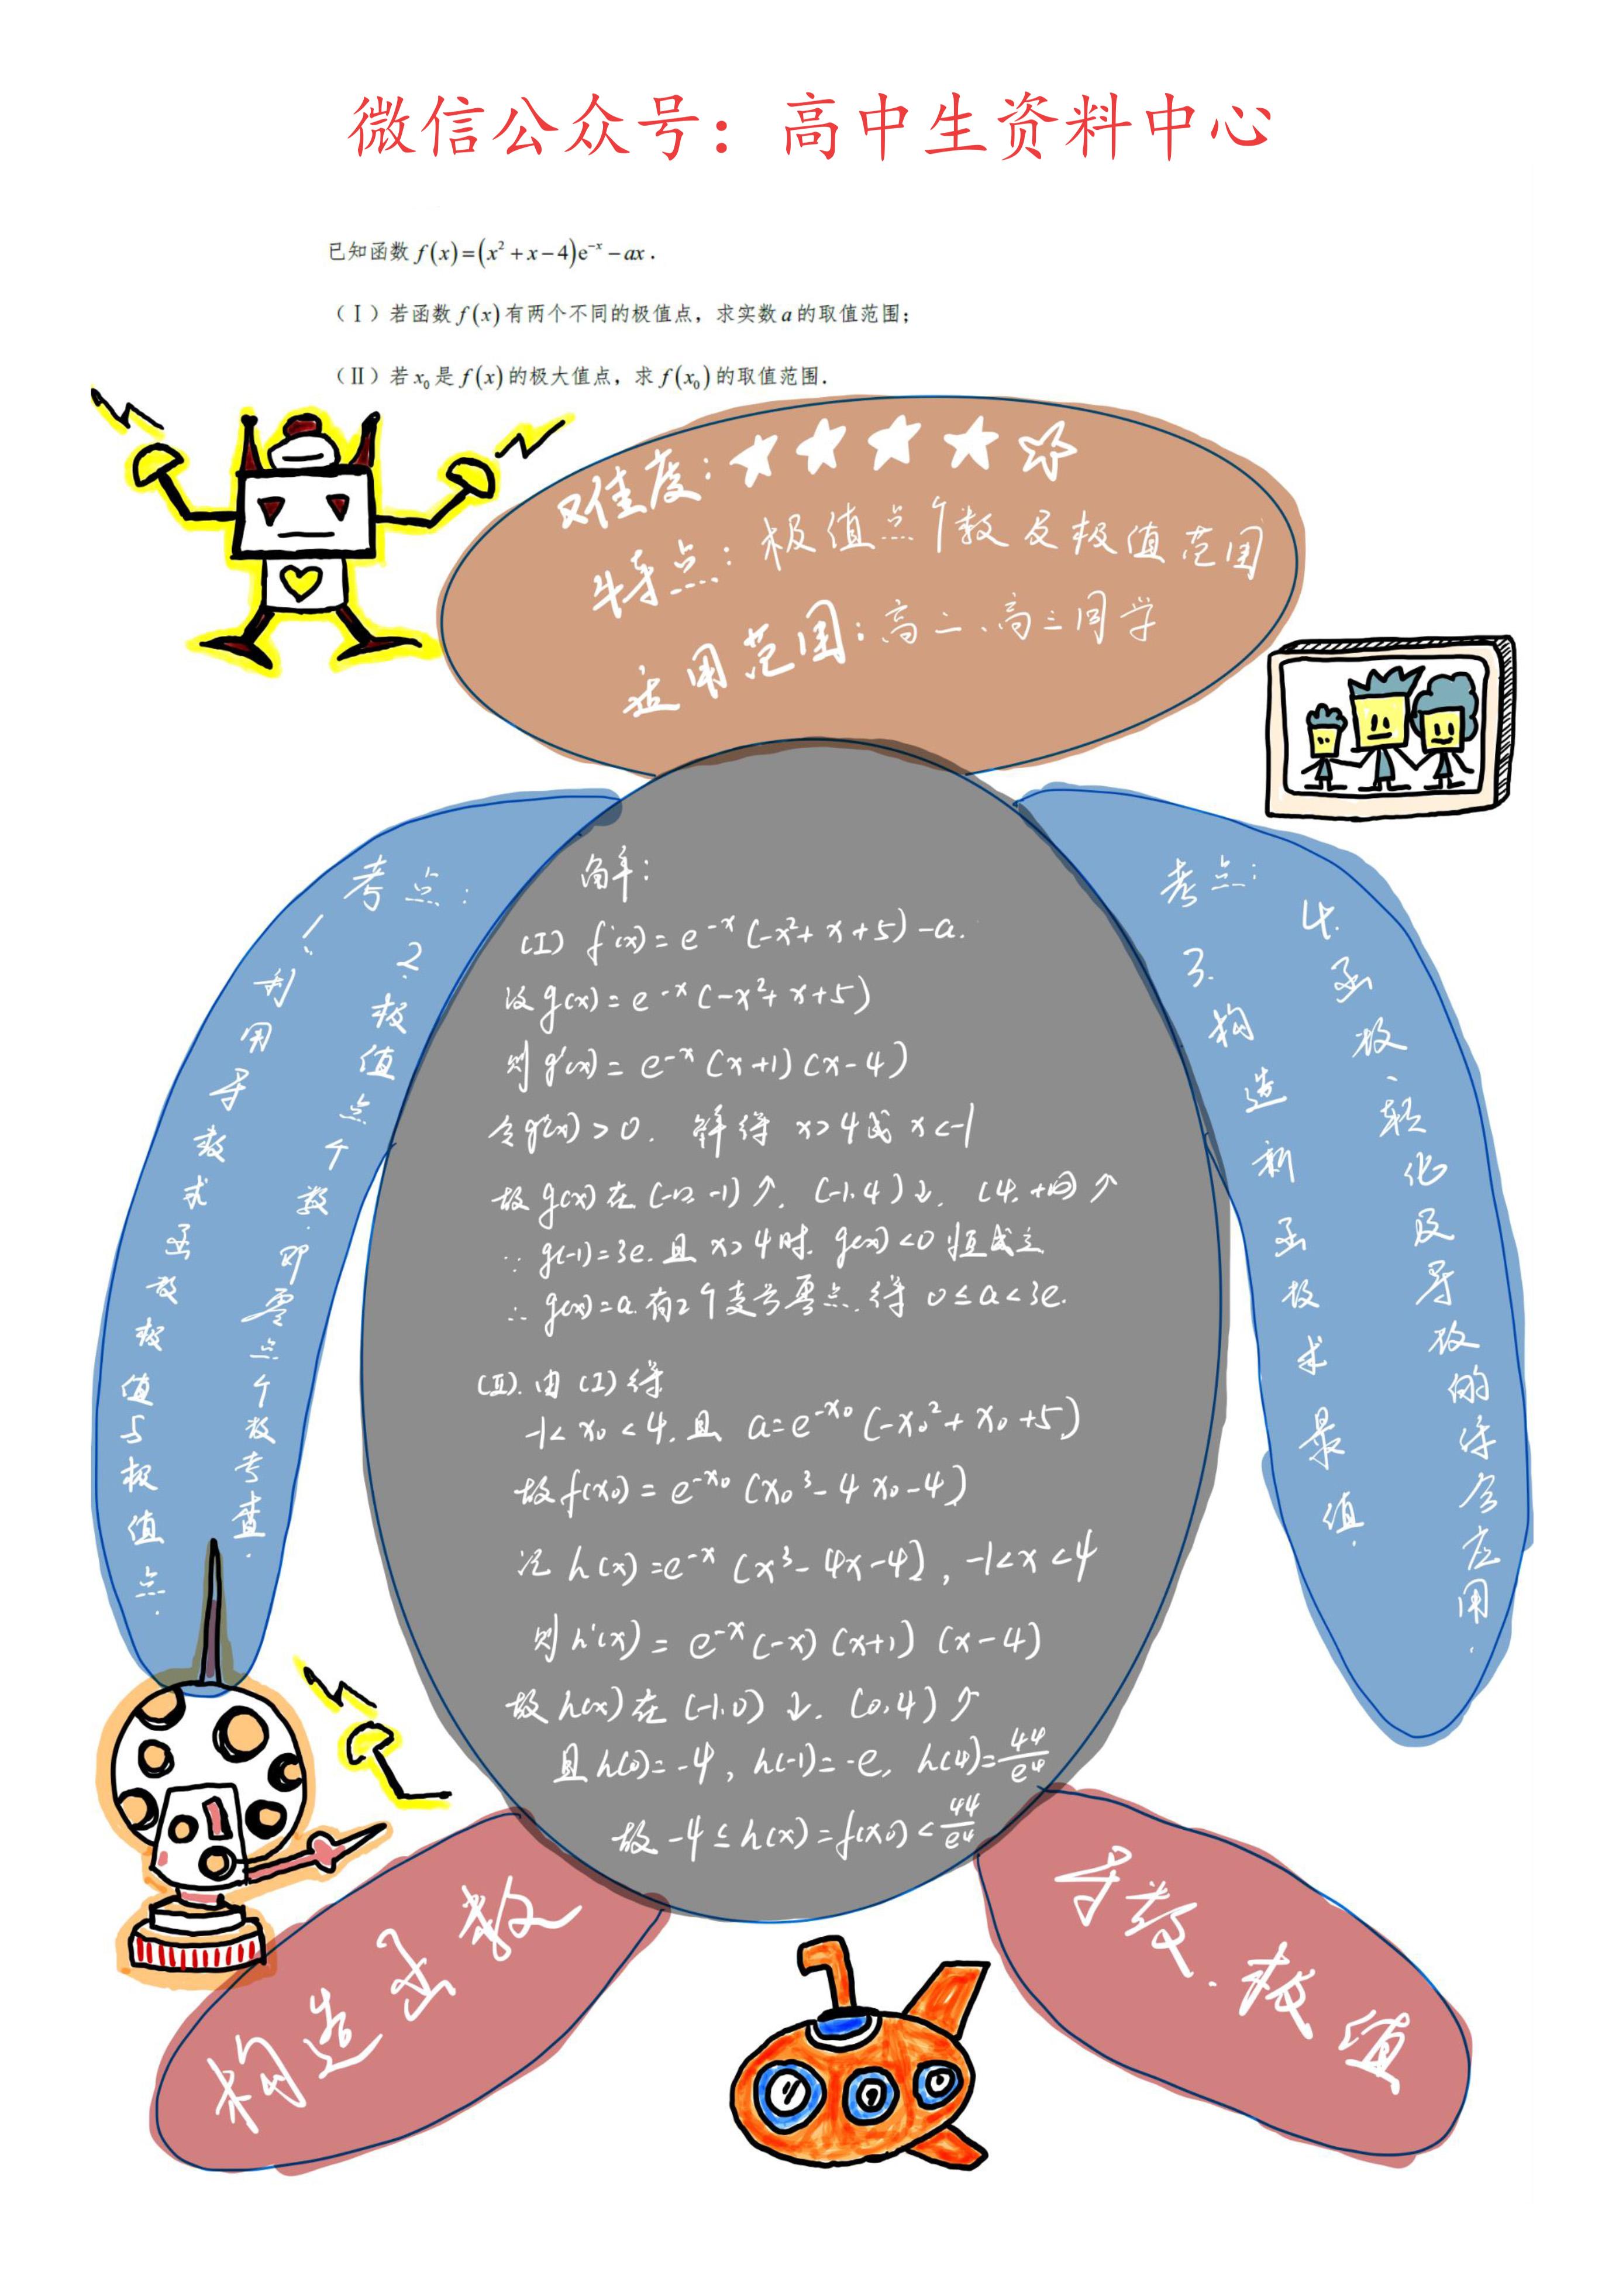 微信公众号：高中生资料中心
已知函数 f(x)=(x²+x-4)e⁻ˣ-ax．
（Ⅰ）若函数 f(x)有两个不同的极值点，求实数 a 的取值范围；
（Ⅱ）若 x₀ 是 f(x)的极大值点，求 f(x₀)的取值范围．
难度：★★★★☆
特点：极值点个数及极值范围
适用范围：高二、高三同学
考点：
1.利用导数求函数极值与极值点.
2.极值点个数.即零点个数考查.
解：
(I) f'(x)=e⁻ˣ(-x²+x+5)-a.
设g(x)=e⁻ˣ(-x²+x+5)
则g'(x)=e⁻ˣ(x+1)(x-4)
令g'(x)>0. 解得 x>4或x<-1
故g(x)在(-∞,-1)↑. (-1,4)↓. (4,+∞)↑
∵g(-1)=3e.且x>4时.g(x)<0恒成立.
∴g(x)=a.有2个变号零点.得 0≤a<3e.
(Ⅱ).由(I)得
-1<x₀<4.且 a=e^(-x₀)(-x₀²+x₀+5)
故f(x₀)=e^(-x₀)(x₀³-4x₀-4)
记h(x)=e⁻ˣ(x³-4x-4), -1<x<4
则h'(x)=e⁻ˣ(-x)(x+1)(x-4)
故h(x)在(-1,0)↓. (0,4)↑
且h(0)=-4, h(-1)=-e, h(4)=44/e⁴
故-4≤h(x)=f(x₀)<44/e⁴
考点：
3.构造新函数求最值.
4.函数、转化及导数的综合应用.
构造函数
导数.极值